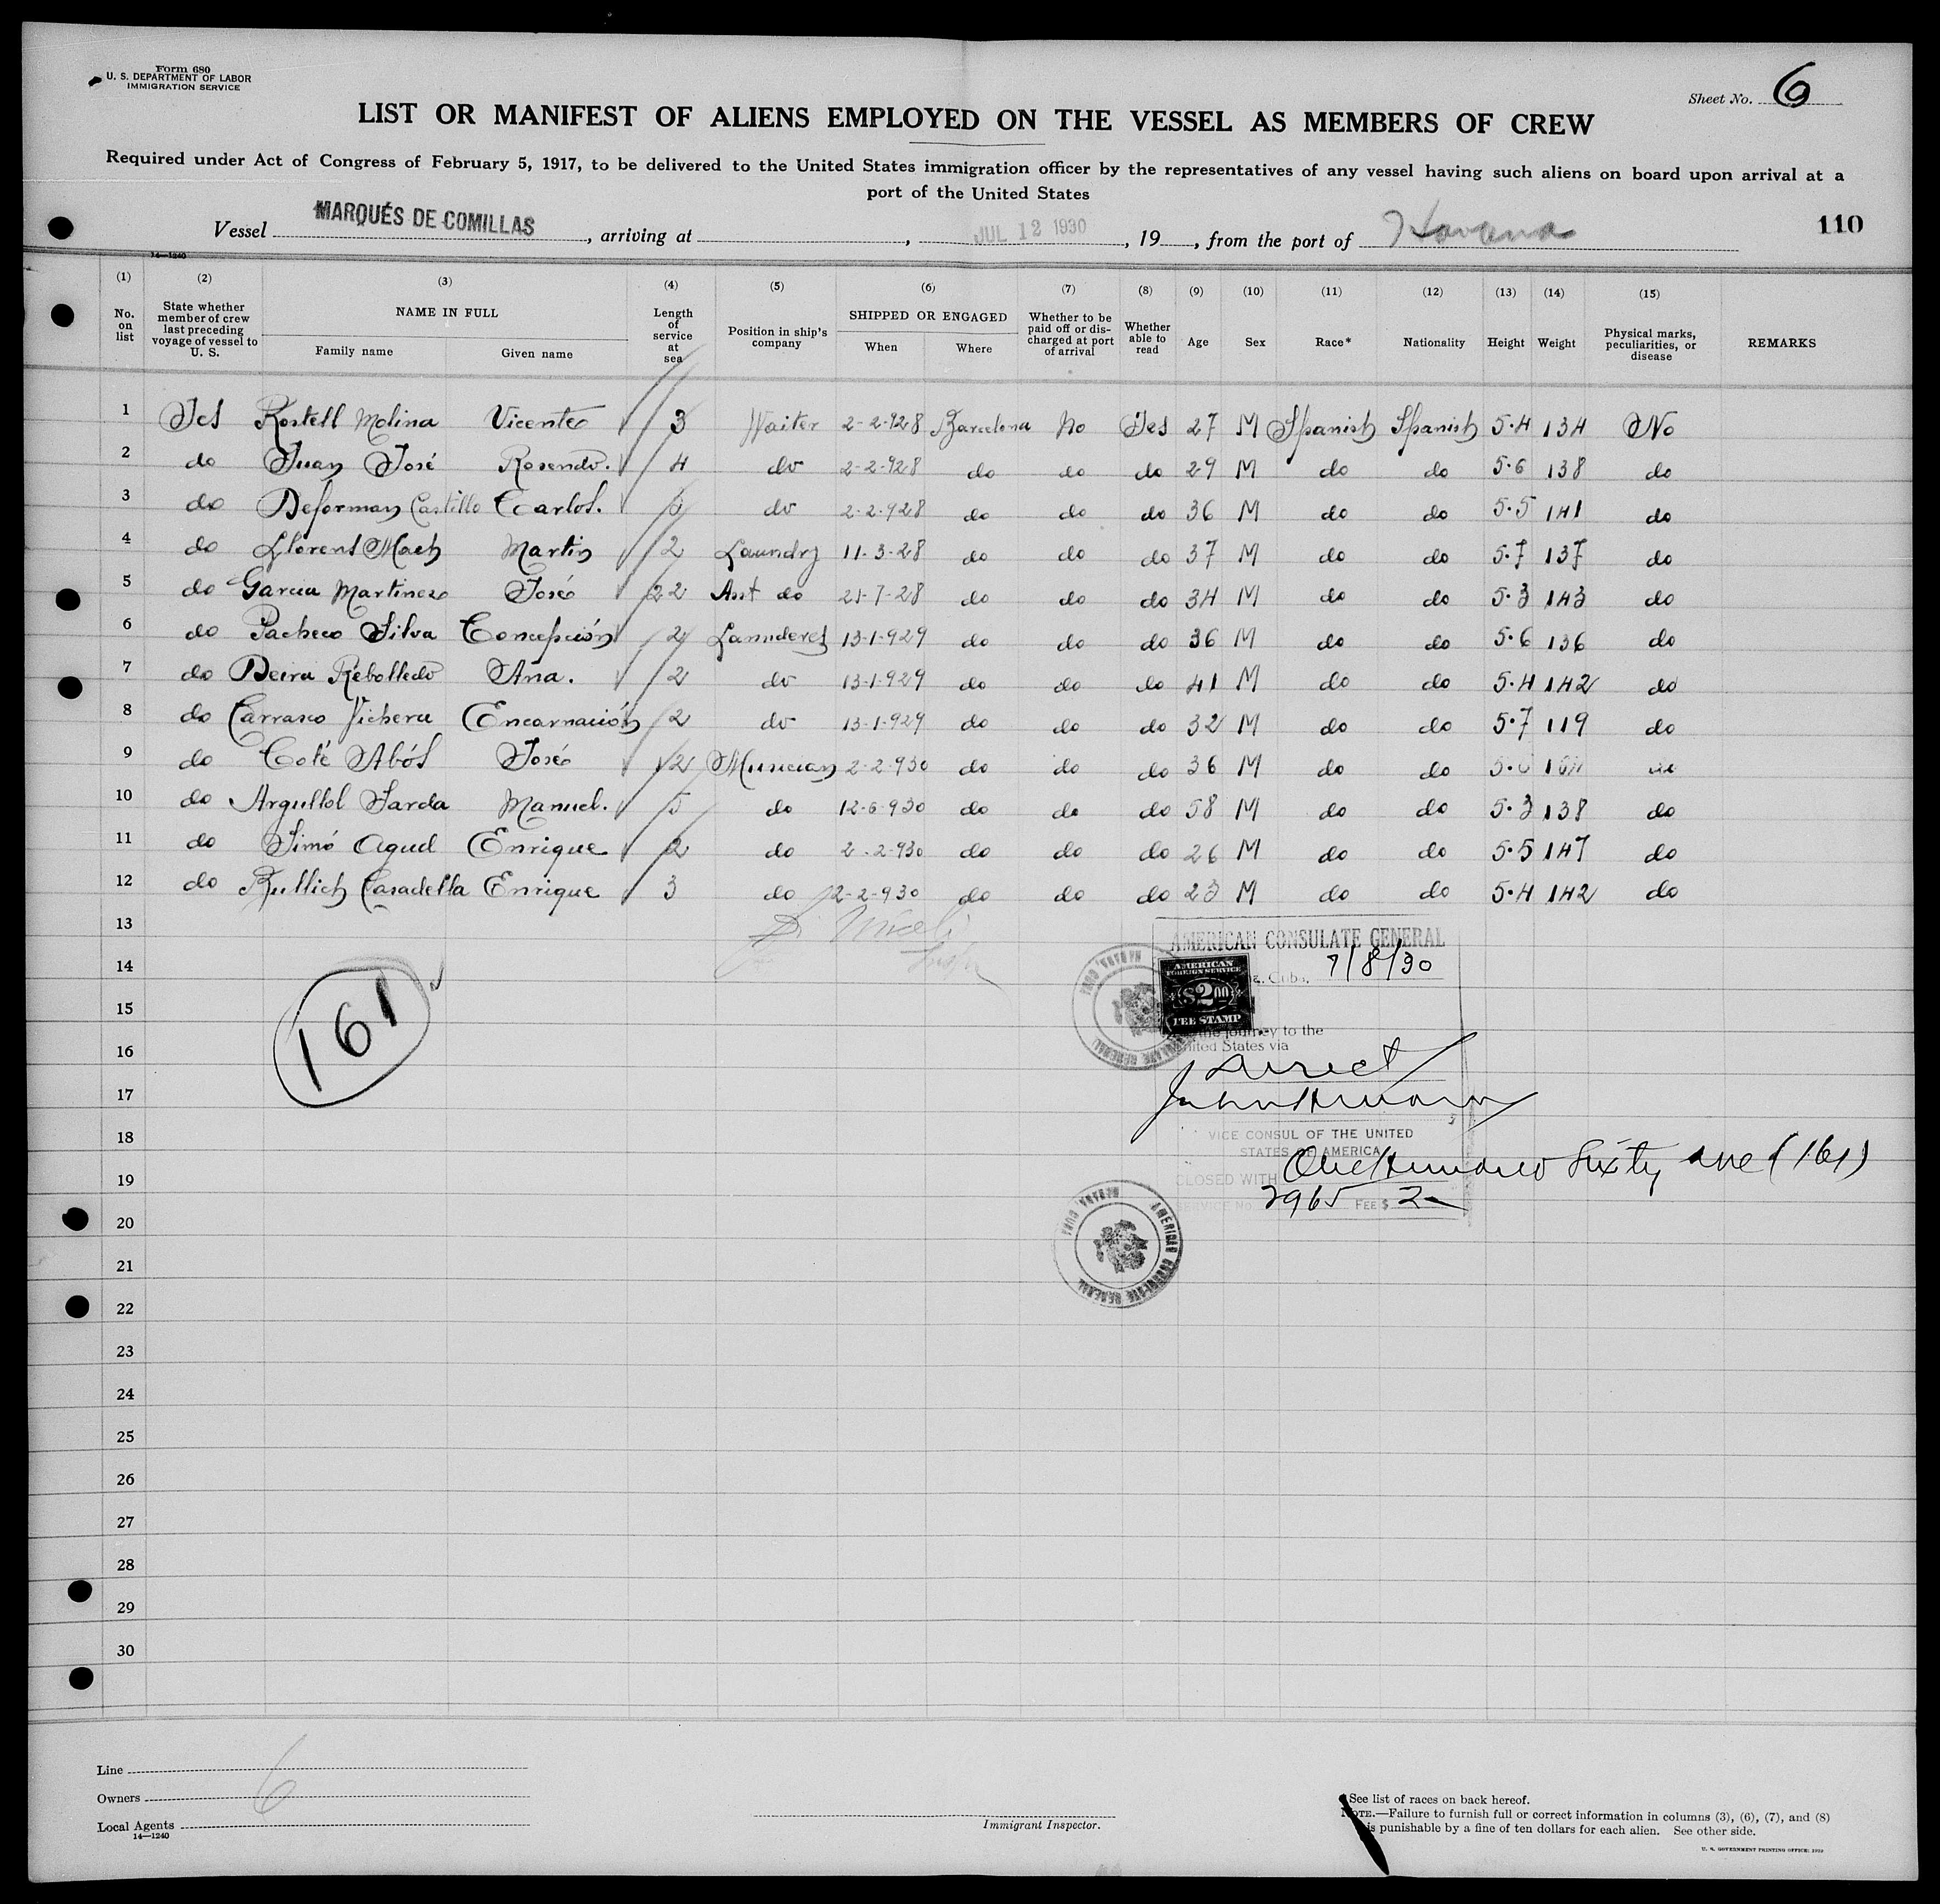 Form 680
U. S. DEPARTMENT OF LABOR
IMMIGRATION SERVICE
Sheet No. 6
LIST OR MANIFEST OF ALIENS EMPLOYED ON THE VESSEL AS MEMBERS OF CREW
Required under Act of Congress of February 5, 1917, to be delivered to the United States immigration officer by the representatives of any vessel having such aliens on board upon arrival at a
port of the United States
Vessel MARQUÉS DE COMILLAS, arriving at , JUL 12 1930, 19 , from the port of Havana
110
14—1240
(1) (2) (3) (4) (5) (6) (7) (8) (9) (10) (11) (12) (13) (14) (15)
No. on list
State whether member of crew last preceding voyage of vessel to U. S.
NAME IN FULL
Family name Given name
Length of service at sea
Position in ship's company
SHIPPED OR ENGAGED
When Where
Whether to be paid off or discharged at port of arrival
Whether able to read
Age Sex Race* Nationality Height Weight
Physical marks, peculiarities, or disease
REMARKS
1 Yes Rostell Molina Vicente 3 Waiter 2-2-928 Barcelona No Yes 27 M Spanish Spanish 5.4 134 No
2 do Juan José Rosendo. 4 do 2-2-928 do do do 29 M do do 5.6 138 do
3 do Deforman Castillo Carlos. do 2-2-928 do do do 36 M do do 5.5 141 do
4 do Llorens Mach Martin 2 Laundry 11-3-28 do do do 37 M do do 5.7 137 do
5 do Garcia Martinez José 22 Asst do 21-7-28 do do do 34 M do do 5.3 143 do
6 do Pacheco Silva Concepción 2 Launderes 13-1-929 do do do 36 M do do 5.6 136 do
7 do Deira Rebolledo Ana. 2 do 13-1-929 do do do 41 M do do 5.4 142 do
8 do Carrasco Vichera Encarnación 2 do 13-1-929 do do do 32 M do do 5.7 119 do
9 do Coté Abós José 2 Musician 2-2-930 do do do 36 M do do
10 do Argullol Sarda Manuel. 5 do 12-6-930 do do do 58 M do do 5.3 138 do
11 do Simó Agud Enrique 2 do 2-2-930 do do do 26 M do do 5.5 147 do
12 do Rullich Casadella Enrique 3 do 2-2-930 do do do 23 M do do 5.4 142 do
13
AMERICAN CONSULATE GENERAL
14
Cuba, 7/8/30
AMERICAN
FOREIGN SERVICE
$2.00
FEE STAMP
161
15
the journey to the
16
United States via
direct
17
18
VICE CONSUL OF THE UNITED
STATES OF AMERICA
One Hundred Sixty one (161)
19
CLOSED WITH
SERVICE No. 2965 FEE $ 2
AMERICAN CONSULATE GENERAL
HABANA, CUBA
20
21
22
23
24
25
26
27
28
29
30
Line
6
Owners
Local Agents
14—1240
Immigrant Inspector.
*See list of races on back hereof.
NOTE.—Failure to furnish full or correct information in columns (3), (6), (7), and (8)
is punishable by a fine of ten dollars for each alien. See other side.
U. S. GOVERNMENT PRINTING OFFICE: